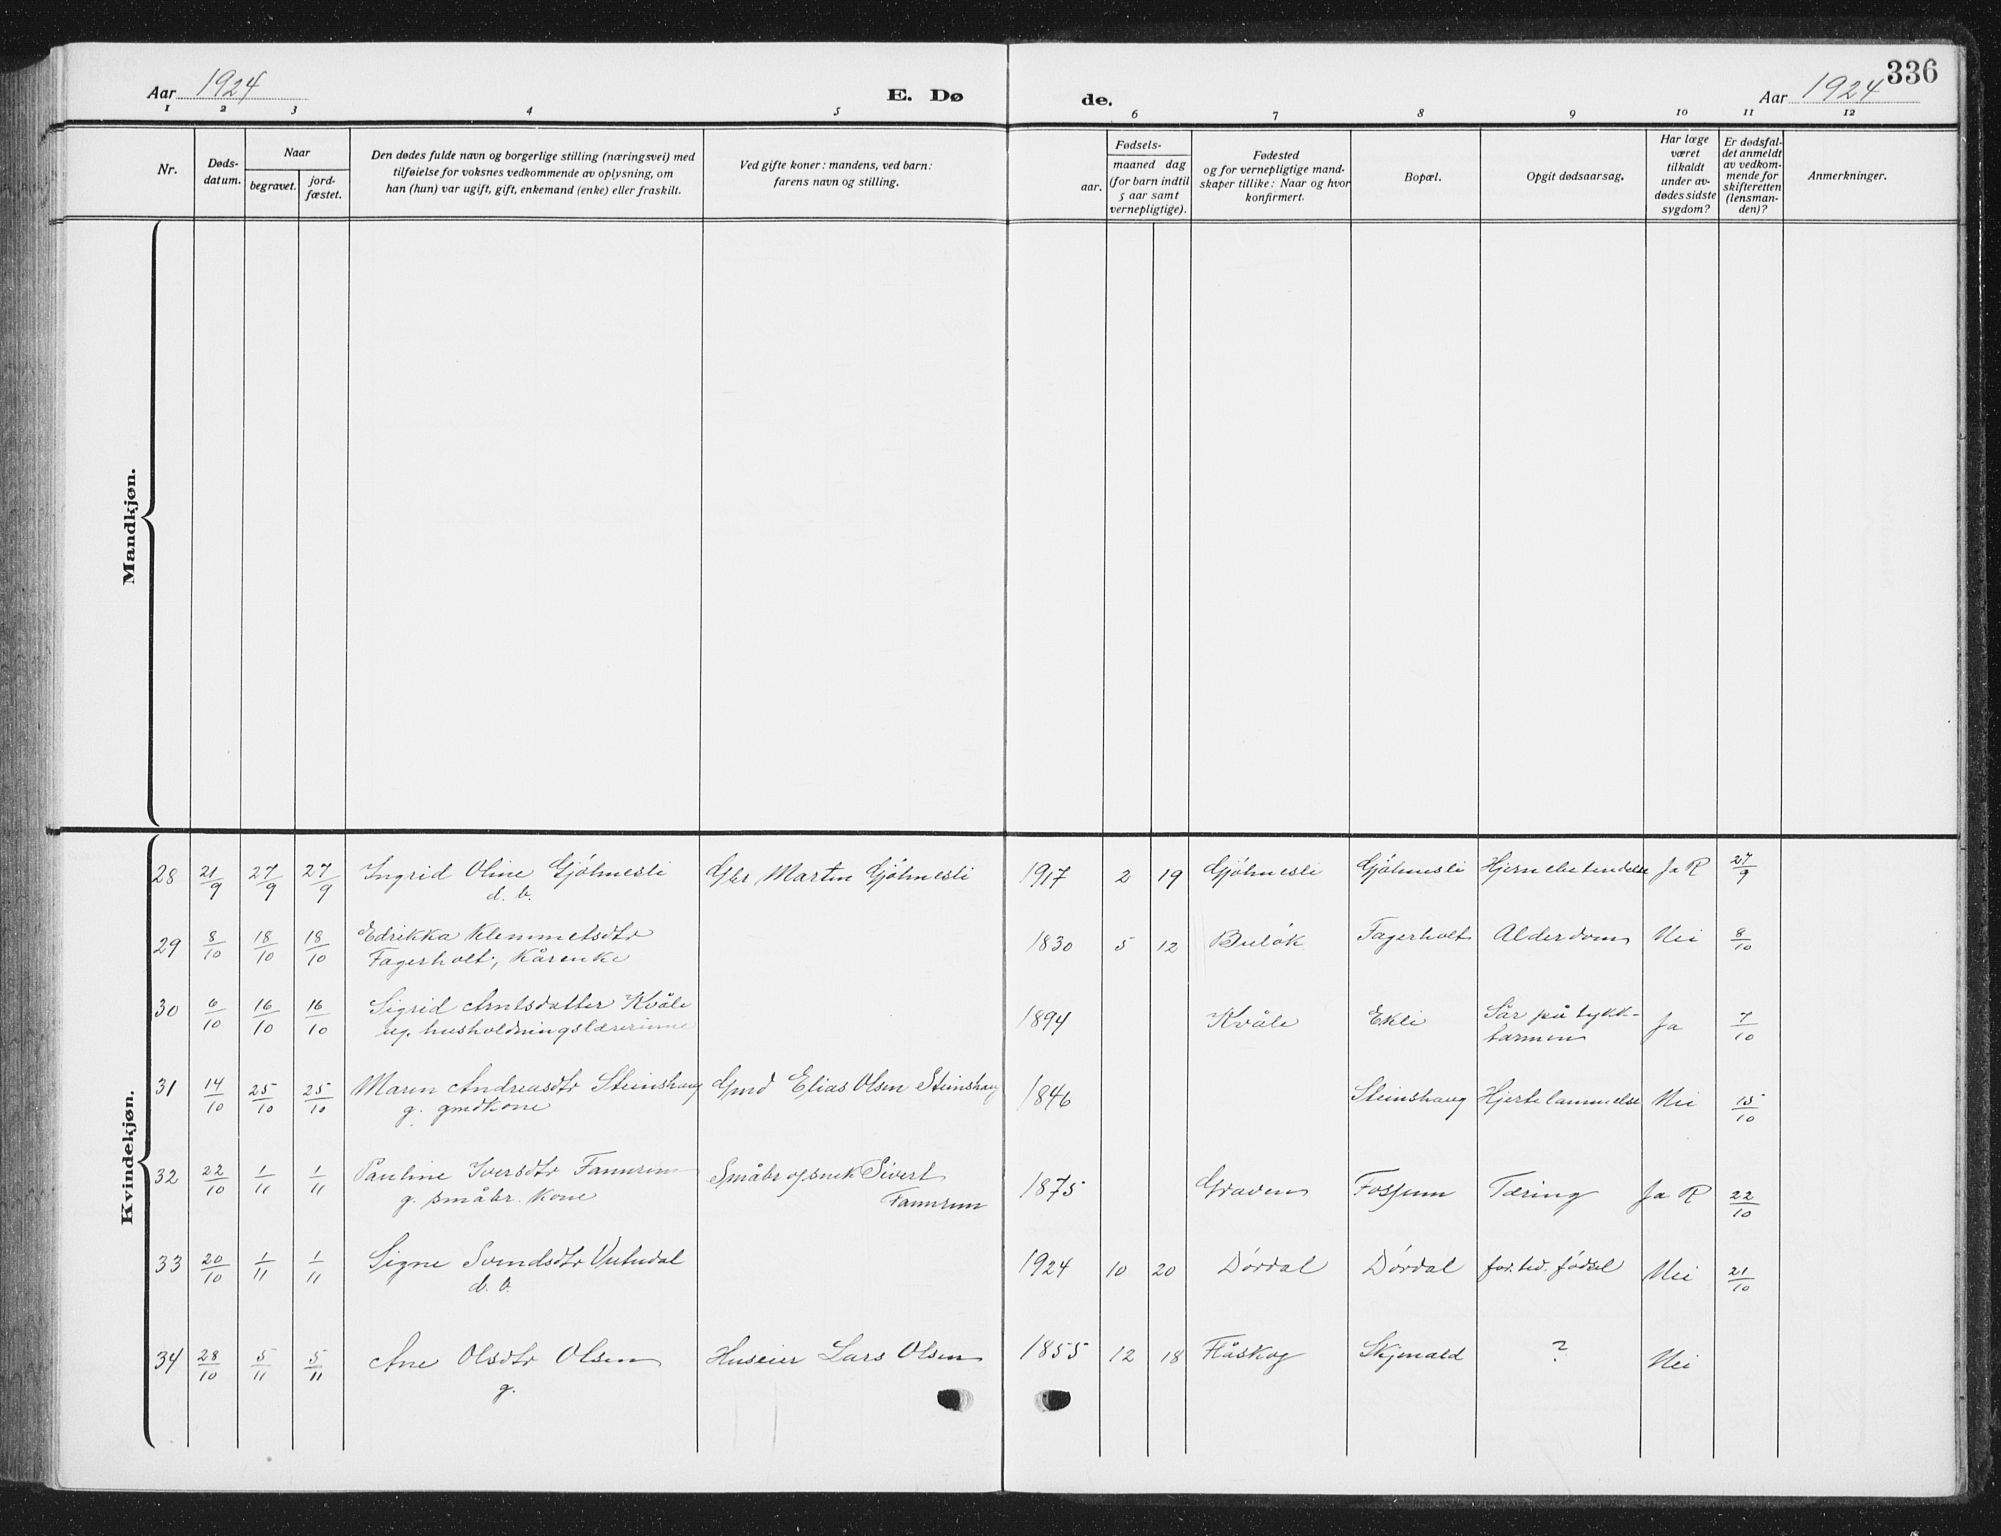 Aar 1924
E. Dø
de.
Aar 1924
336
1 2 3 4 5 6 7 8 9 10 11 12
Nr.
Døds-
datum.
Naar
begravet.
jord-
fæstet.
Den dødes fulde navn og borgerlige stilling (næringsvei) med
tilføielse for voksnes vedkommende av oplysning, om
han (hun) var ugift, gift, enkemand (enke) eller fraskilt.
Ved gifte koner: mandens, ved barn:
farens navn og stilling.
Fødsels-
aar.
maaned dag
(for barn indtil
5 aar samt
vernepligtige).
Fødested
og for vernepligtige mand-
skaper tillike: Naar og hvor
konfirmert.
Bopæl.
Opgit dødsaarsag.
Har læge
været
tilkaldt
under av-
dødes sidste
sygdom?
Er dødsfal-
det anmeldt
av vedkom-
mende for
skifteretten
(lensman-
den)?
Anmerkninger.
Mandkjøn.
Kvindekjøn.
28 21/9 27/9 27/9 Ingrid Oline Gjöhnesli Gbr Martin Gjöhnesli 1917 2 19 Gjöhnesli Gjöhnesli Hjernebetendelse Ja R 27/9
d. b.
29 8/10 18/10 18/10 Edrikka Klemmetsdtr 1830 5 12 Fagerholt Alderdom Nei 8/10
Fagerholt, kårenke
30 6/10 16/10 16/10 Sigrid Arntsdatter Kvåle 1894 Kvåle Ekli Sår på tykk- Ja 7/10
ug. husholdningslærerinne tarmen
31 14/10 25/10 25/10 Maren Andreasdtr Steinshaug Gmd Elias Olsen Steinshaug 1846 Steinshaug Hjertelammelse Nei 15/10
g. gmdkone
32 22/10 1/11 1/11 Pauline Iversdtr Fannrem Småbr og snek Sivert 1875 Graven Fossum Tæring Ja R 22/10
g. småbr. kone Fannrem
33 20/10 1/11 1/11 Signe Svendsdtr Vutudal 1924 10 20 Dørdal Dørdal for. tid. fødsel Nei 21/10
d. b.
34 28/10 5/11 5/11 Ane Olsdtr Olsen Huseier Lars Olsen 1855 12 18 Flåskog Skjenald ? Nei
g.